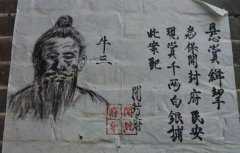 懸賞緝拏
為保開封府民安
現賞千兩白銀捕
此案犯
開封府
牛三